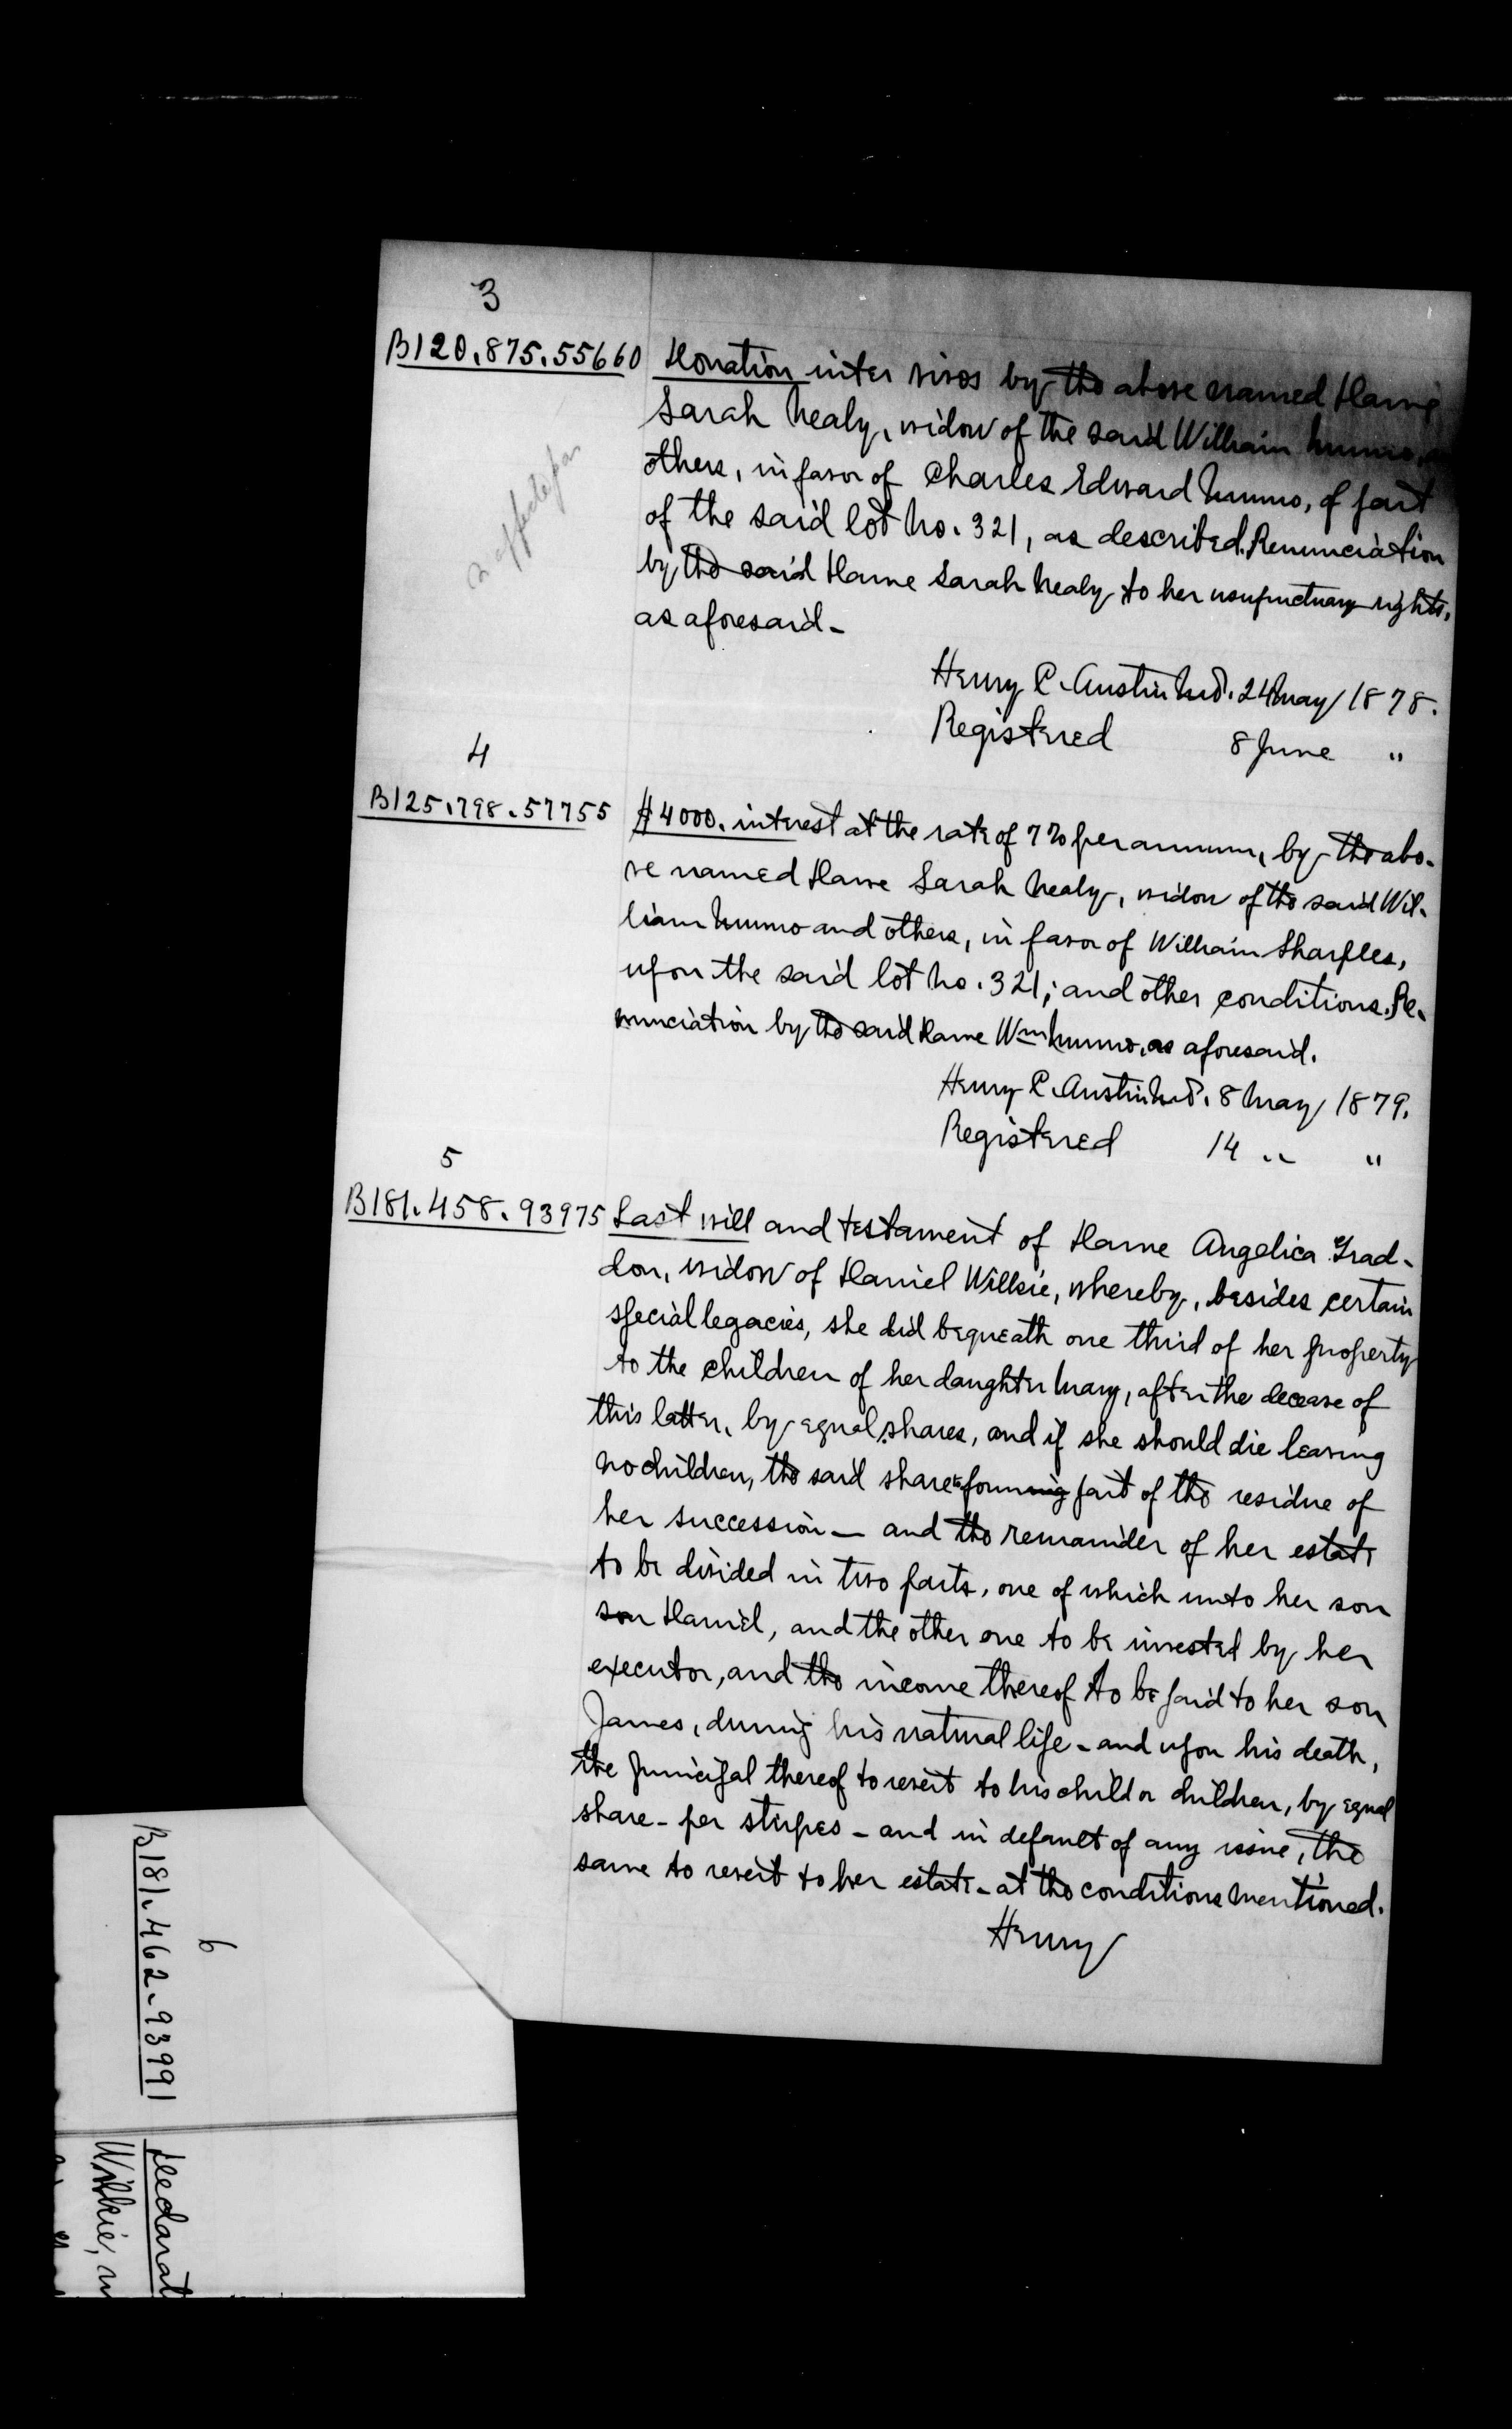 3
B120.875.55660
Donation inter vivos by the above named Dame
Sarah Nealy, widow of the said William Munro,
others, in favor of Charles Edward Munro, of part
of the said lot No. 321, as described. Renunciation
by the said Dame Sarah Nealy to her usufructuary rights,
as aforesaid-
n'affecte pas
Henry C. Austin N.P. 24 May 1878.
Registered 8 June "
4
B125.798.57755
$4000. interest at the rate of 7% per annum, by the abo-
ve named Dame Sarah Nealy, widow of the said Wil-
liam Munro and others, in favor of William Sharples,
upon the said lot No. 321; and other conditions. Re-
nunciation by the said Dame Wm Munro, as aforesaid.
Henry C. Austin N.P. 8 May 1879.
Registered 14 " "
5
B181.458.93975
Last will and testament of Dame Angelica Grad-
don, widow of Daniel Wilkie, whereby, besides certain
special legacies, she did bequeath one third of her property
to the children of her daughter Mary, after the decease of
this latter, by equal shares, and if she should die leaving
no children, the said share forming part of the residue of
her succession - and the remainder of her estate
to be divided in two parts, one of which unto her son
son Daniel, and the other one to be invested by her
executor, and the income thereof to be paid to her son
James, during his natural life - and upon his death,
the principal thereof to revert to his child or children, by equal
share - per stirpes - and in default of any issue, the
same to revert to her estate - at the conditions mentioned.
Henry
6
B181.462.93991
Declarat
Wilkie,